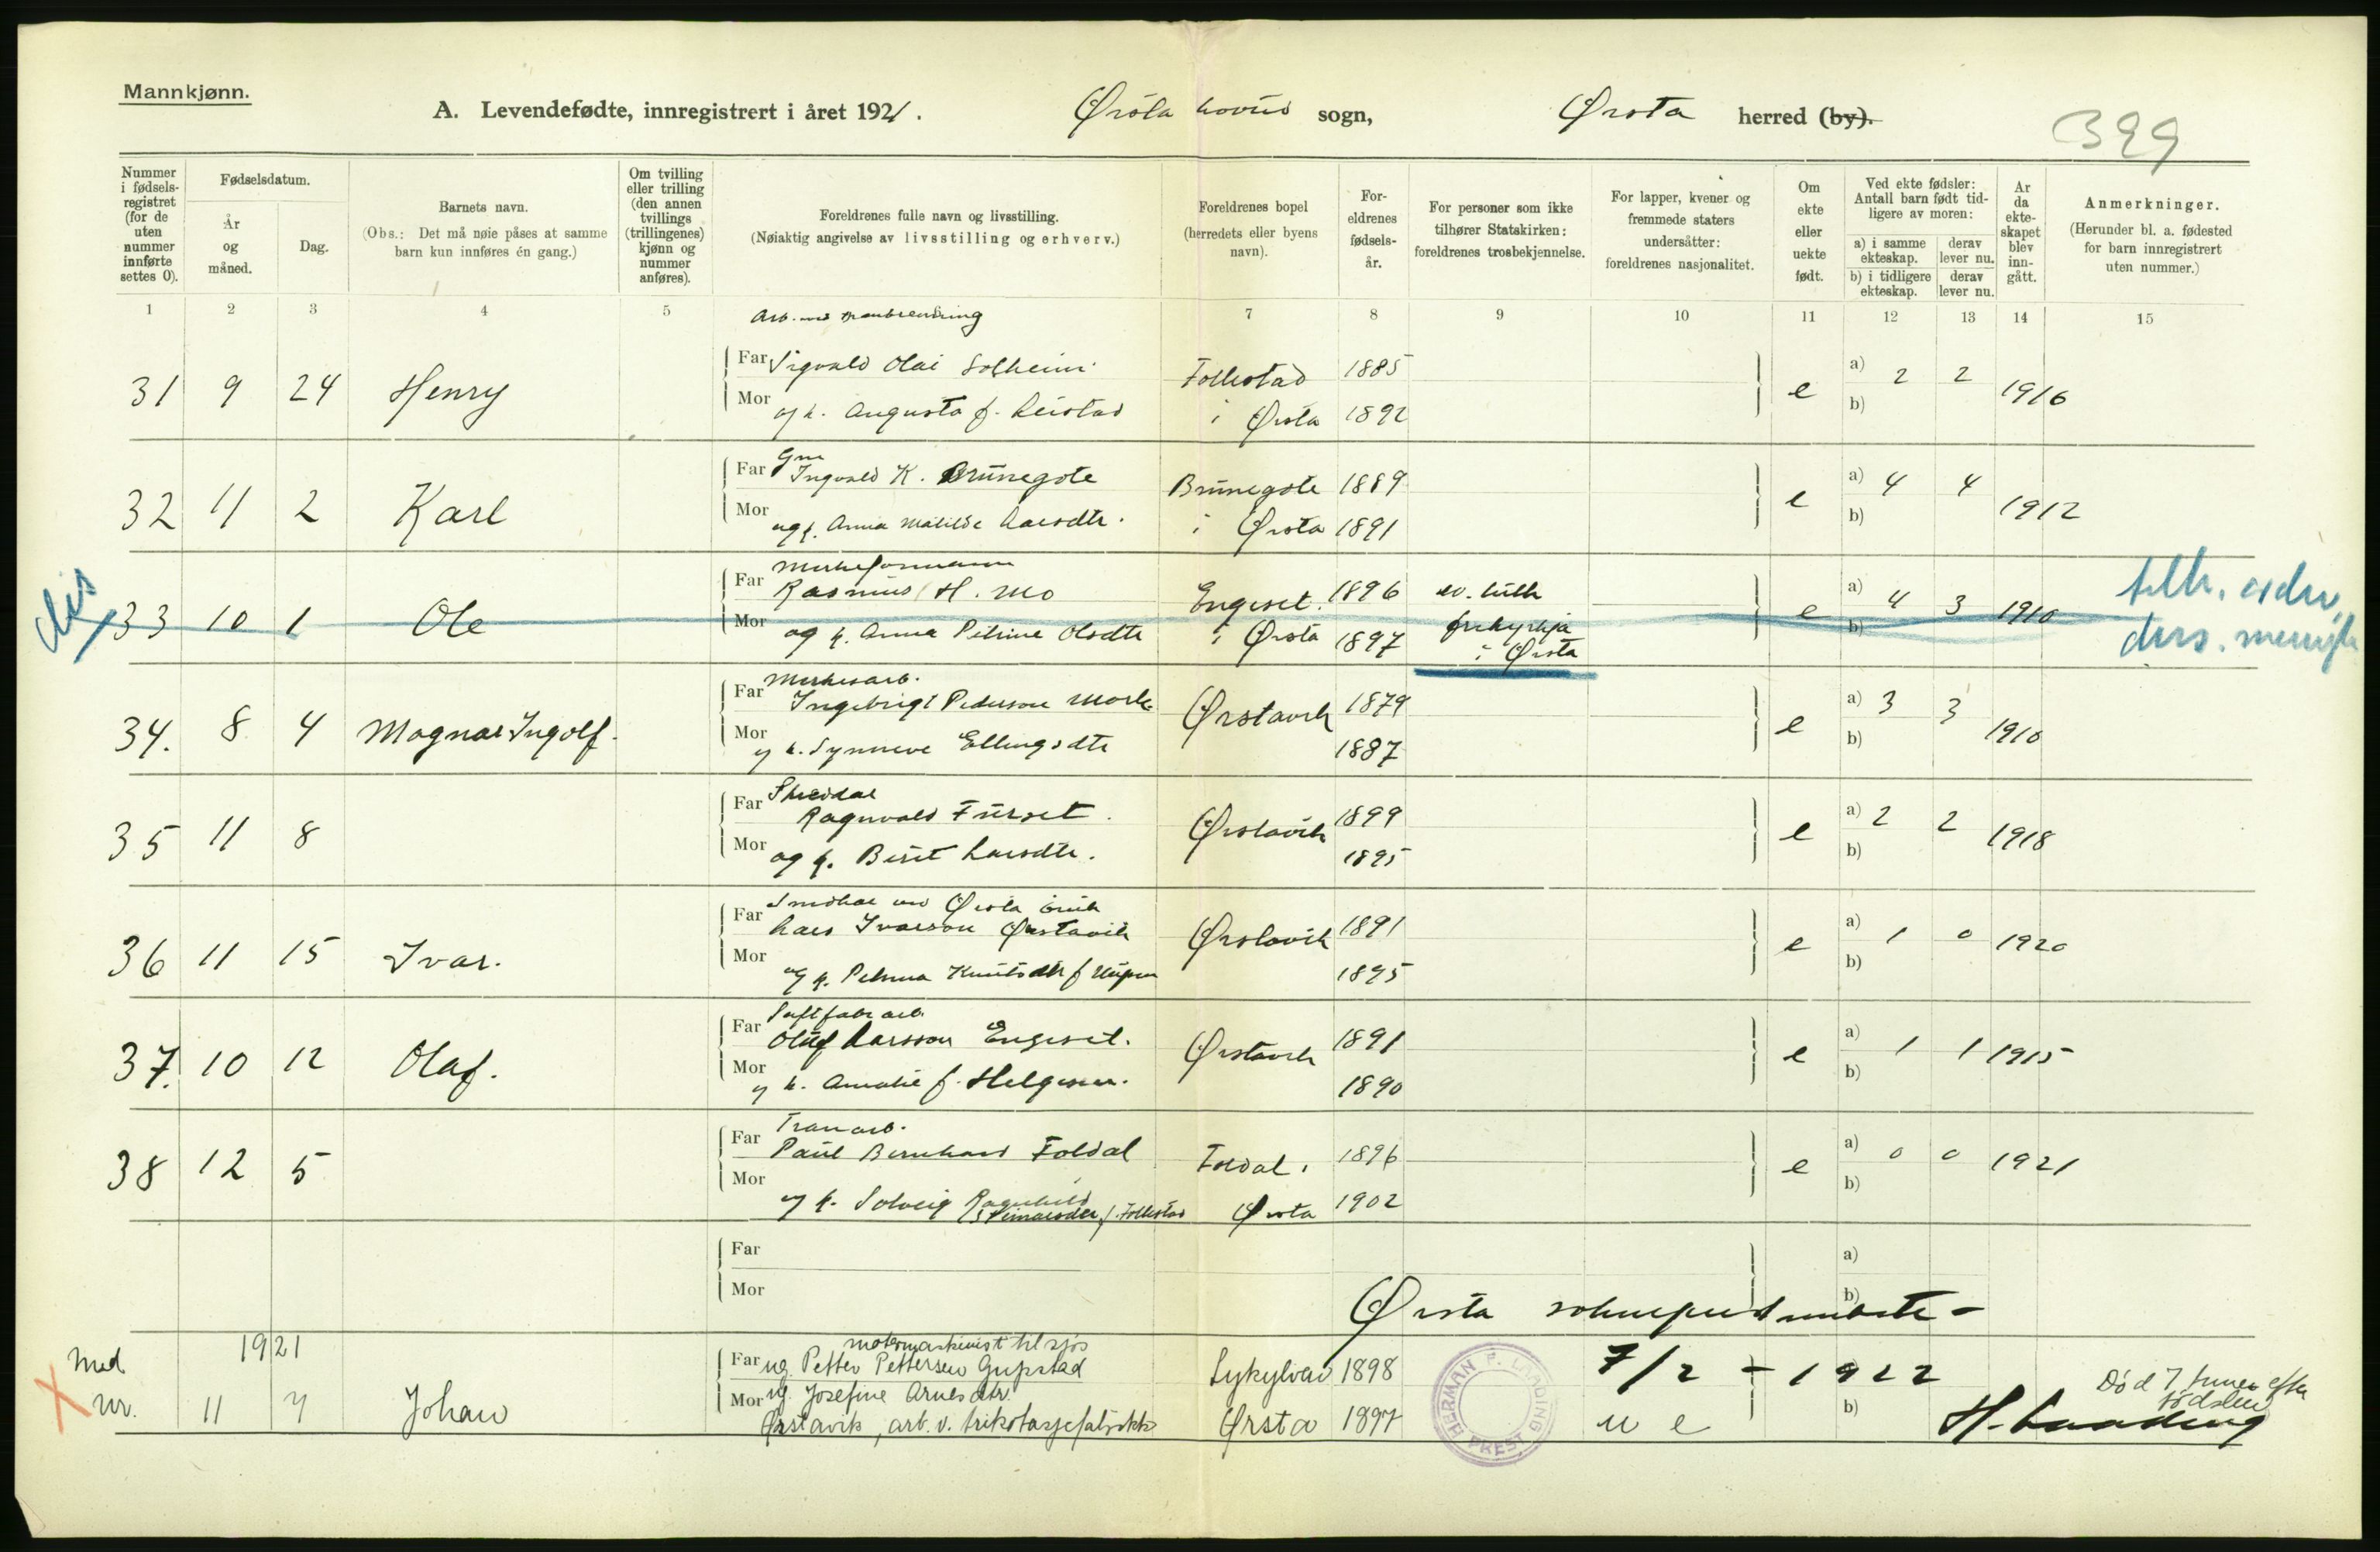 Mannkjønn.
A. Levendefødte, innregistrert i året 1921. Ørsta sogn, Ørsta herred (by).
399
Nummer i fødsels-registret (for de uten nummer innførte settes 0).
Fødselsdatum.
År og måned.
Dag.
Barnets navn.
(Obs.: Det må nøie påses at samme barn kun innføres én gang.)
Om tvilling eller trilling (den annen tvillings (trillingenes) kjønn og nummer anføres).
Foreldrenes fulle navn og livsstilling.
(Nøiaktig angivelse av livsstilling og erhverv.)
Foreldrenes bopel (herredets eller byens navn).
For-eldrenes fødsels-år.
For personer som ikke tilhører Statskirken: foreldrenes trosbekjennelse.
For lapper, kvener og fremmede staters undersåtter: foreldrenes nasjonalitet.
Om ekte eller uekte født.
Ved ekte fødsler: Antall barn født tid-ligere av moren:
a) i samme ekteskap.
derav lever nu.
b) i tidligere ekteskap.
derav lever nu.
Ar da ekte-skapet blev inn-gått.
Anmerkninger.
(Herunder bl. a. fødested for barn innregistrert uten nummer.)
1 2 3 4 5 7 8 9 10 11 12 13 14 15
Far Sigvald Olai Solheim 1885
31 9 24 Henry Follestad e a) 2 2 1916
Mor og k. Augusta f. Leistad i Ørsta 1892 b)
Gm
Far Ingvald K. Brunegote Brunegote 1889 a) 4 4
32 11 2 Karl e 1912
Mor og k. Anna Matilde Larsdtr. i Ørsta 1891 b)
dis
Far Rasmus H. Mo Engeset 1896 ev. luth a) 4 3
33 10 1 Ole e 1910
Mor og k. Anna Petrine Olsdtr i Ørsta 1897 frikyrkja b)
i Ørsta
Far Ingebrigt Pederson Mork 1879 a) 3 3
34. 8 4 Magnar Ingolf. Ørstavik e 1910
Mor og k. Synneve Ellingsdtr 1887 b)
Far Ragnvald Furset 1899 a) 2 2
35 11 8 Ørstavik e 1918
Mor og k. Berit Larsdtr. 1895 b)
Far Lars Ivarson Ørstavik 1891 a)
36 11 15 Ivar. Ørstavik e 1 0 1920
Mor og k. Petrina Knutsdtr 1895 b)
Far Oluf Larsson Engeset. 1891 a)
37. 10 12 Olaf. Ørstavik e 1 1 1915
Mor og k. Amalie f. Helgesen. 1890 b)
Tranarb.
Far Paul Bernhard Foldal Foldal i 1896 a) 0 0
38 12 5 e 1921
Mor og k. Solveig Ragnhild f. Follestad Ørsta 1902 b)
Far a)
Mor b)
Ørsta
1921 motormaskinist til sjøs
Med Far ug. Petter Pettersen Gupstad Sykylven 1898 7/2 - 1922
Mor ug. Josefine Arnesdtr. Død 7 timer efter fødslen
nr. 11 7 Johan Ørstavik, arb. v. trikotasjefabrikk Ørsta 1897 u e b)
HERMAN F. LAADING PREST
H. Laading